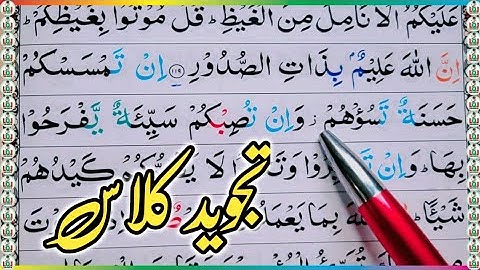 عَلَيْكُمُ الْاَنَامِلَ مِنَ الْغَيْظِ ؕ قُلْ مُوْتُوْا بِغَيْظِكُمْ ؕ
اِنَّ اللّٰهَ عَلِيْمٌۢ بِذَاتِ الصُّدُوْرِ ﴿۱۱۹﴾ اِنْ تَمْسَسْكُمْ
حَسَنَةٌ تَسُؤْهُمْ ز وَاِنْ تُصِبْكُمْ سَيِّئَةٌ يَّفْرَحُوْا
بِهَا ؕ وَاِنْ لَا كَيْدُهُمْ
شَيْـًٔا ؕ بِمَا
تجوید کلاس